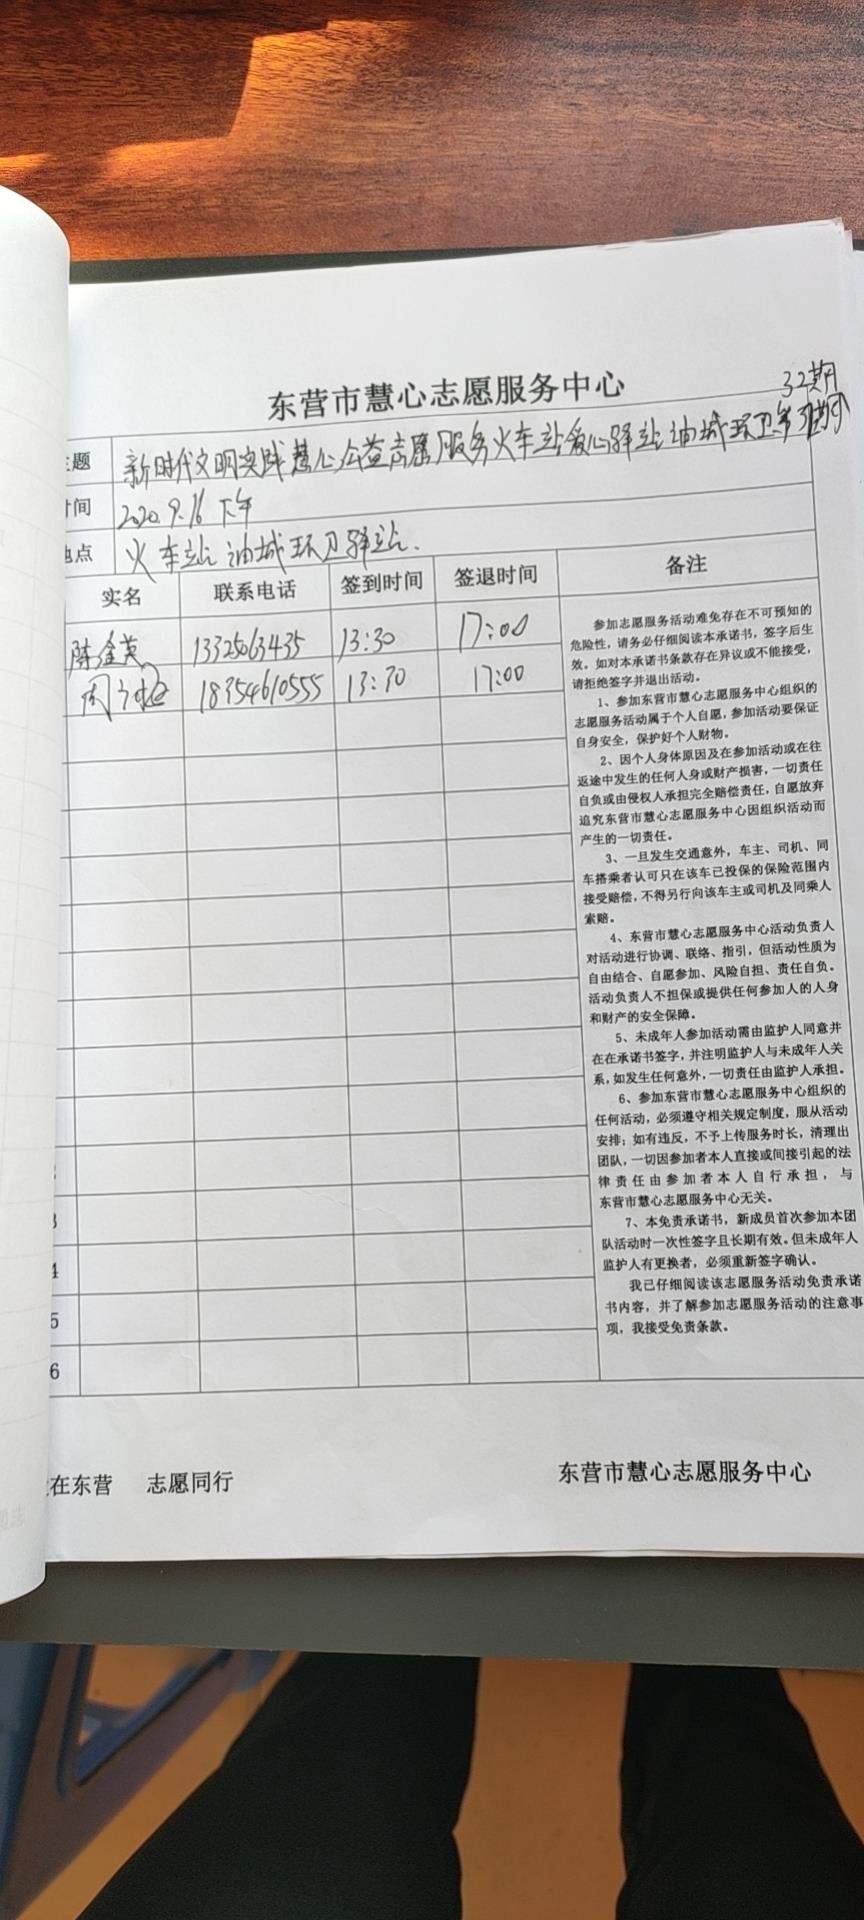 东营市慧心志愿服务中心
32期
主题 新时代文明实践慧心公益志愿服务火车站爱心驿站油城环卫
时间 2020.9.16 下午
地点 火车站油城环卫驿站.
实名 联系电话 签到时间 签退时间 备注
陈金英 13325063435 13:30 17:00
周 18354610555 13:30 17:00
参加志愿服务活动难免存在不可预知的
危险性，请务必仔细阅读本承诺书，签字后生
效。如对本承诺书条款存在异议或不能接受，
请拒绝签字并退出活动。
1、参加东营市慧心志愿服务中心组织的
志愿服务活动属于个人自愿，参加活动要保证
自身安全，保护好个人财物。
2、因个人身体原因及在参加活动或在往
返途中发生的任何人身或财产损害，一切责任
自负或由侵权人承担完全赔偿责任，自愿放弃
追究东营市慧心志愿服务中心因组织活动而
产生的一切责任。
3、一旦发生交通意外，车主、司机、同
车搭乘者认可只在该车已投保的保险范围内
接受赔偿，不得另行向该车主或司机及同乘人
索赔。
4、东营市慧心志愿服务中心活动负责人
对活动进行协调、联络、指引，但活动性质为
自由结合、自愿参加、风险自担、责任自负。
活动负责人不担保或提供任何参加人的人身
和财产的安全保障。
5、未成年人参加活动需由监护人同意并
在在承诺书签字，并注明监护人与未成年人关
系，如发生任何意外，一切责任由监护人承担。
6、参加东营市慧心志愿服务中心组织的
任何活动，必须遵守相关规定制度，服从活动
安排；如有违反，不予上传服务时长，清理出
团队，一切因参加者本人直接或间接引起的法
律责任由参加者本人自行承担，与
东营市慧心志愿服务中心无关。
7、本免责承诺书，新成员首次参加本团
队活动时一次性签字且长期有效。但未成年人
监护人有更换者，必须重新签字确认。
我已仔细阅读该志愿服务活动免责承诺
书内容，并了解参加志愿服务活动的注意事
项，我接受免责条款。
3
4
5
6
在东营 志愿同行 东营市慧心志愿服务中心